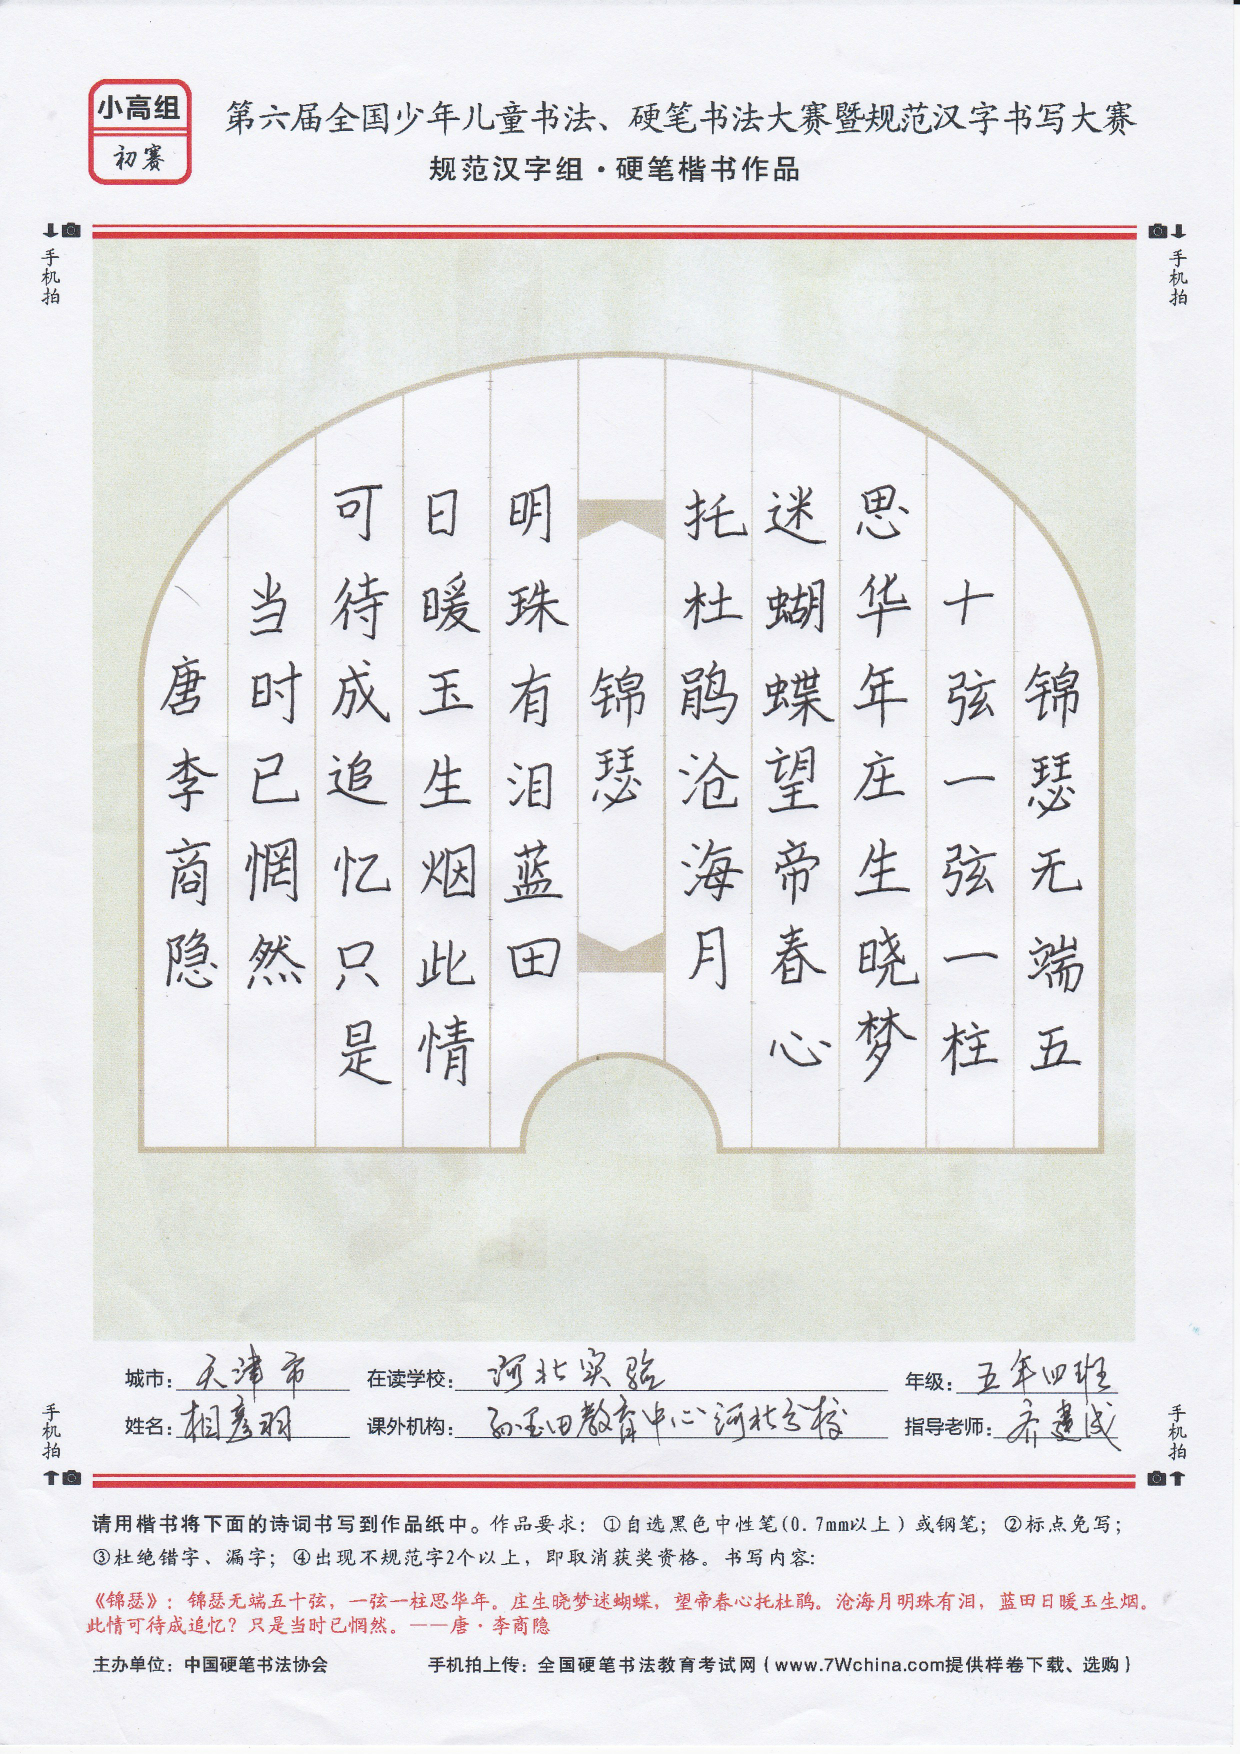 小高组
初赛
第六届全国少年儿童书法、硬笔书法大赛暨规范汉字书写大赛
规范汉字组·硬笔楷书作品
手机拍
手机拍
锦瑟无端五
十弦一弦一柱
思华年庄生晓梦
迷蝴蝶望帝春心
托杜鹃沧海月
锦瑟
明珠有泪蓝田
日暖玉生烟此情
可待成追忆只是
当时已惘然
唐李商隐
城市：天津市 在读学校：河北实验 年级：五年四班
姓名：相彦羽 课外机构：孙玉田教育中心河北分校 指导老师：齐建成
手机拍
手机拍
请用楷书将下面的诗词书写到作品纸中。作品要求：①自选黑色中性笔(0.7mm以上)或钢笔；②标点免写；
③杜绝错字、漏字；④出现不规范字2个以上，即取消获奖资格。书写内容：
《锦瑟》：锦瑟无端五十弦，一弦一柱思华年。庄生晓梦迷蝴蝶，望帝春心托杜鹃。沧海月明珠有泪，蓝田日暖玉生烟。
此情可待成追忆？只是当时已惘然。——唐·李商隐
主办单位：中国硬笔书法协会 手机拍上传：全国硬笔书法教育考试网（www.7Wchina.com提供样卷下载、选购）